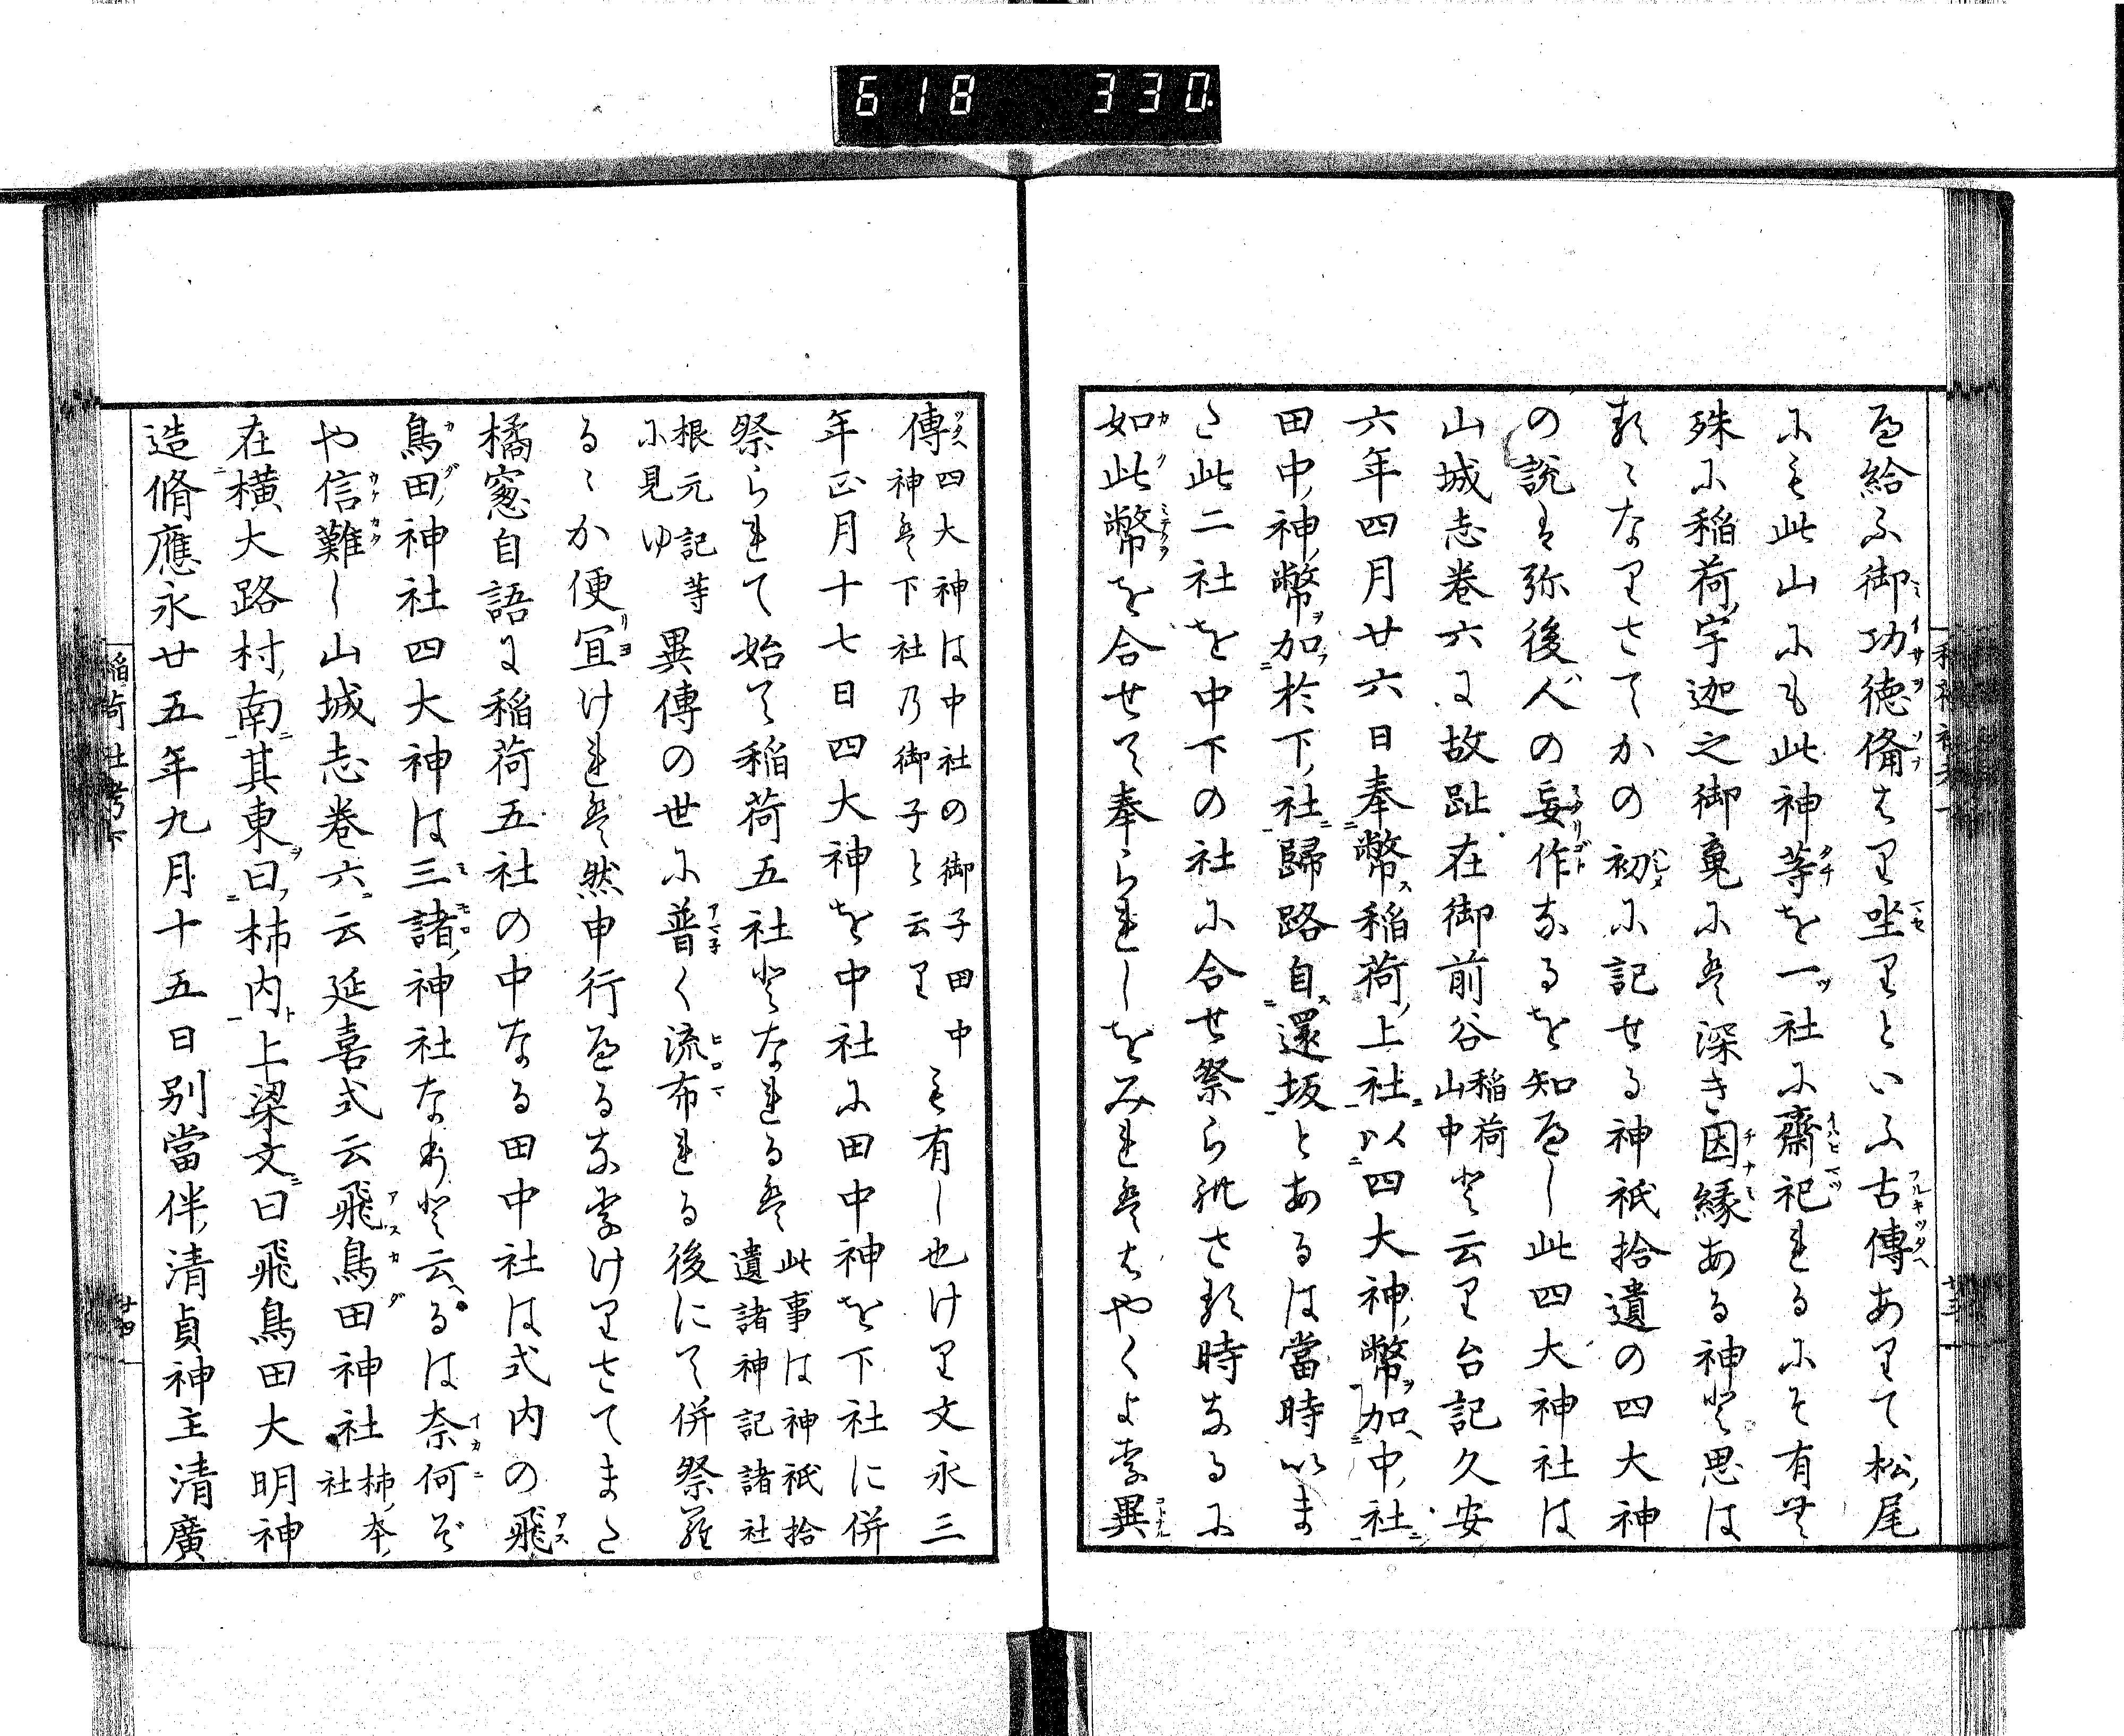 618 330
給ふ御功徳備はり坐りといふ古傳ありて松尾
にも此山にも此神等を一社に齋祀れるにそ有む
殊に稲荷宇迦之御魂には深き因縁ある神と思は
るゝなりさてかの初に記せる神祇拾遺の四大神
の説は弥後人の妄作なるを知べし此四大神社は
山城志巻六に故趾在御前谷稲荷山中と云り台記久安
六年四月廿六日奉幣稲荷上社以四大神幣加中社
田中神幣加於下社歸路自還坂とあるは當時いま
た此二社を中下の社に合せ祭られさる時なるに
如此幣を合せて奉られしをみれははやくよ李異
傳四大神は中社の御子田中神は下社乃御子と云りも有し也けり文永三
年正月十七日四大神を中社に田中神を下社に併
祭られて始て稲荷五社となれるは此事は神祇拾遺諸神記諸社
根元記等に見ゆ異傳の世に普く流布れる後にて併祭羅
るゝか便宜けれは然申行へるな李けりさてまた
橘窓自語に稲荷五社の中なる田中社は式内の飛
鳥田神社四大神は三諸神社なりと云へるは奈何ぞ
や信難し山城志巻六云延喜式云飛鳥田神社柿本社
在横大路村南其東曰柿内上梁文曰飛鳥田大明神
造脩應永廿五年九月十五日別當伴清貞神主清廣
稲荷社考下
廿四